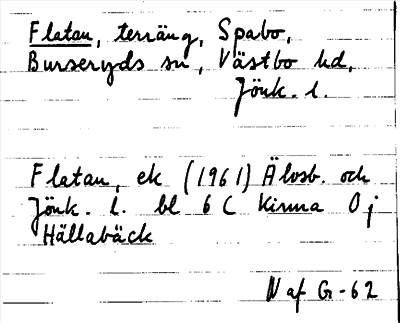 Flatan, terräng, Spabo,
Burseryds sn, Västbo hd,
Jönk. l.
Flatan, ek (1961) Älvsb. och
Jönk. l. bl 6 C Kinna 0 j
Hällabäck
N af G-62